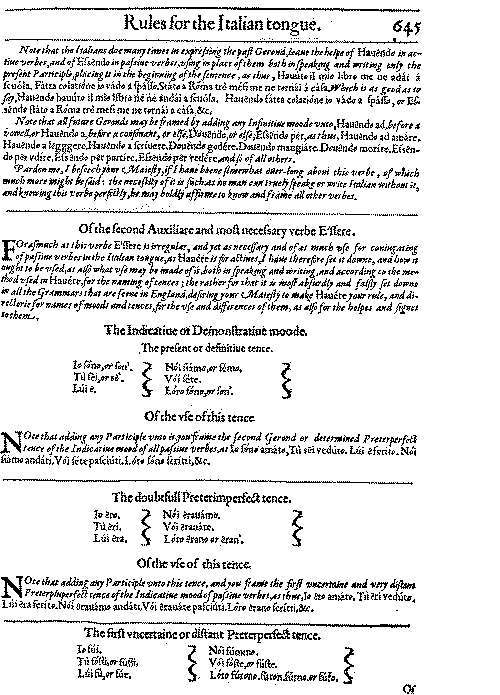 Rules for the Italian tongue. 645
Note that the Italians doe many times in expressing the past Gerond, leaue the helpe of Hauẽndo in ac-
tiue verbes, and of Essẽndo in passiue verbes, vsing in place of them both in speaking and writing only the
present Participle, placing it in the beginning of the sentence, as thus, Hauúto il mio libro me ne
scuóla, Fátta colatióne io vádo a spásso, Státo a Róma tré mési me ne tornái à cása. Which is as good as to
say, Hauẽndo hauúto il mio libro me ne andái a scuóla. Hauẽndo fátta colatióne io vádo a spásso, or Es-
sẽndo státo a Róma tré mési me ne tornái a cása.
Note that all future Geronds may be framed by adding any Infinitiue mood vnto, Hauẽndo ad, before a
vowell, or Hauẽndo a, before a consonant, or else, Douẽndo, or else, Essẽndo pér, as thus, Hauẽndo ad amáre.
Hauẽndo a lẽggere, Hauẽndo a scríuere. Douẽndo godére. Douẽndo mangiáre. Douẽndo moríre. Essẽn-
do pér vdíre, Essẽndo pér partíre. Essẽndo pér vedére, and so of all others.
Pardon me, I beseech your Maiesty, if I haue beene somewhat ouer-long about this verbe, of which
much more might be said: the necessity of it is such as no man can truely speake or write Italian without it,
and knowing this verbe perfectly, he may boldly assume to know and frame all other verbes.
Of the second Auxiliare and most necessary verbe E'ssere.
FOrasmuch as this verbe E'ssere is irregular, and yet as necessary and of as much vse for coniugating
of passiue verbes in the Italian tongue, as Hauére is for actiues, I haue therefore set it downe, and how it
ought to be vsed, as also what vse may be made of it, both in speaking and writing, and according to the me-
thod vsed in Hauére, for the naming of tences; the rather for that it is most absurdly and falsly set downe
in all the Grammars that are seene in England, desiring your Maiesty to make Hauére your rule, and di-
rectorie for names of moods and tences, for the vse and differences of them, as also for the helpes and signes
to them.
The Indicatiue or Demonstratiue moode.
The present or definitiue tence.
Io sóno, or son'. Nói siámo, or sémo,
Tú sẽi, or sẽ'. Vói séte.
Lúi ẽ. Lóro sóno, or son'.
Of the vse of this tence.
NOte that adding any Participle vnto it you frame the second Gerond or determined Preterperfect
tence of the Indicatiue mood of all passiue verbes, as Io sóno amáto, Tú sẽi vedúto. Lúi ẽ feríto. Nói
siámo andáti, Vói séte pasciúti, Lóro sóno scritti, &c.
The doubtfull Preterimperfect tence.
Io ẽra. Nói erauámo.
Tú ẽri. Vói erauáte.
Lúi ẽra. Lóro ẽrano or ẽran'.
Of the vse of this tence.
NOte that adding any Participle vnto this tence, and you frame the first vncertaine and very distant
Preterpluperfect tence of the Indicatiue mood of passiue verbes, as thus, Io ẽra amáto, Tú ẽri vedúto.
Lúi ẽra feríto. Nói erauámo andáti. Vói erauáte pasciúti. Lóro ẽrano scritti, &c.
The first vncertaine or distant Preterperfect tence.
Io fúi. Nói fúmmo.
Tú fósti, or fústi. Vói fóste, or fúste.
Lúi fù, or fúe. Lóro fúrono, fúron, fúrno, or fúro.
Of